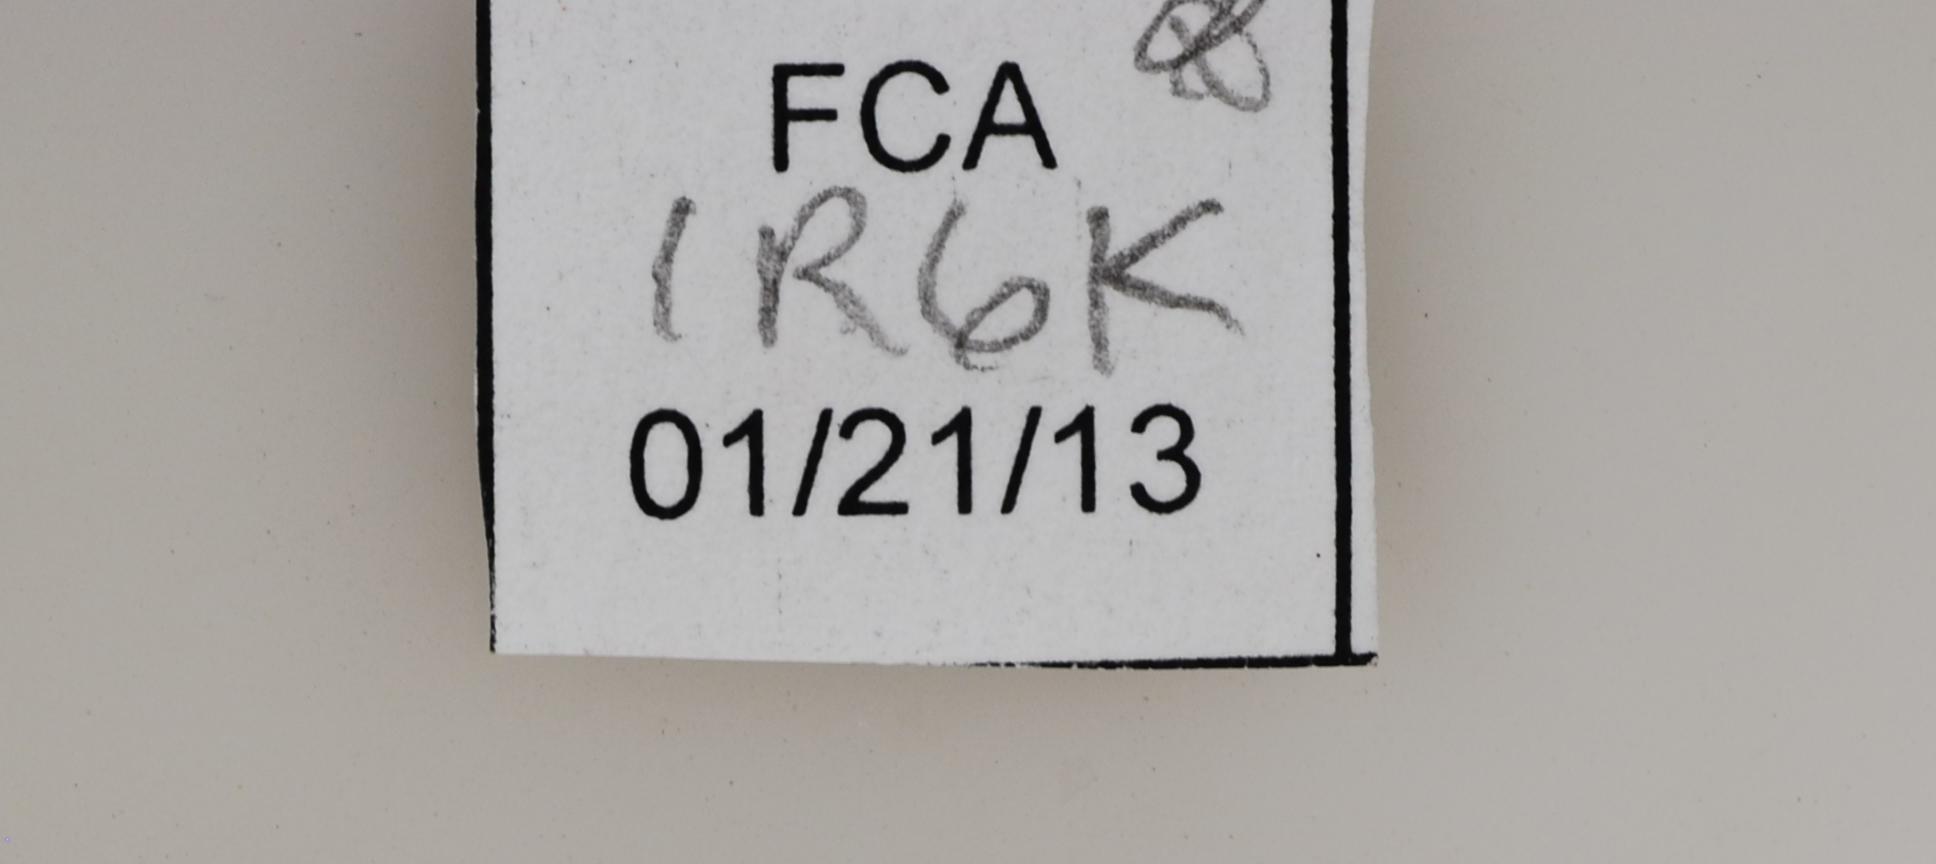 FCA
1R6K
01/21/13